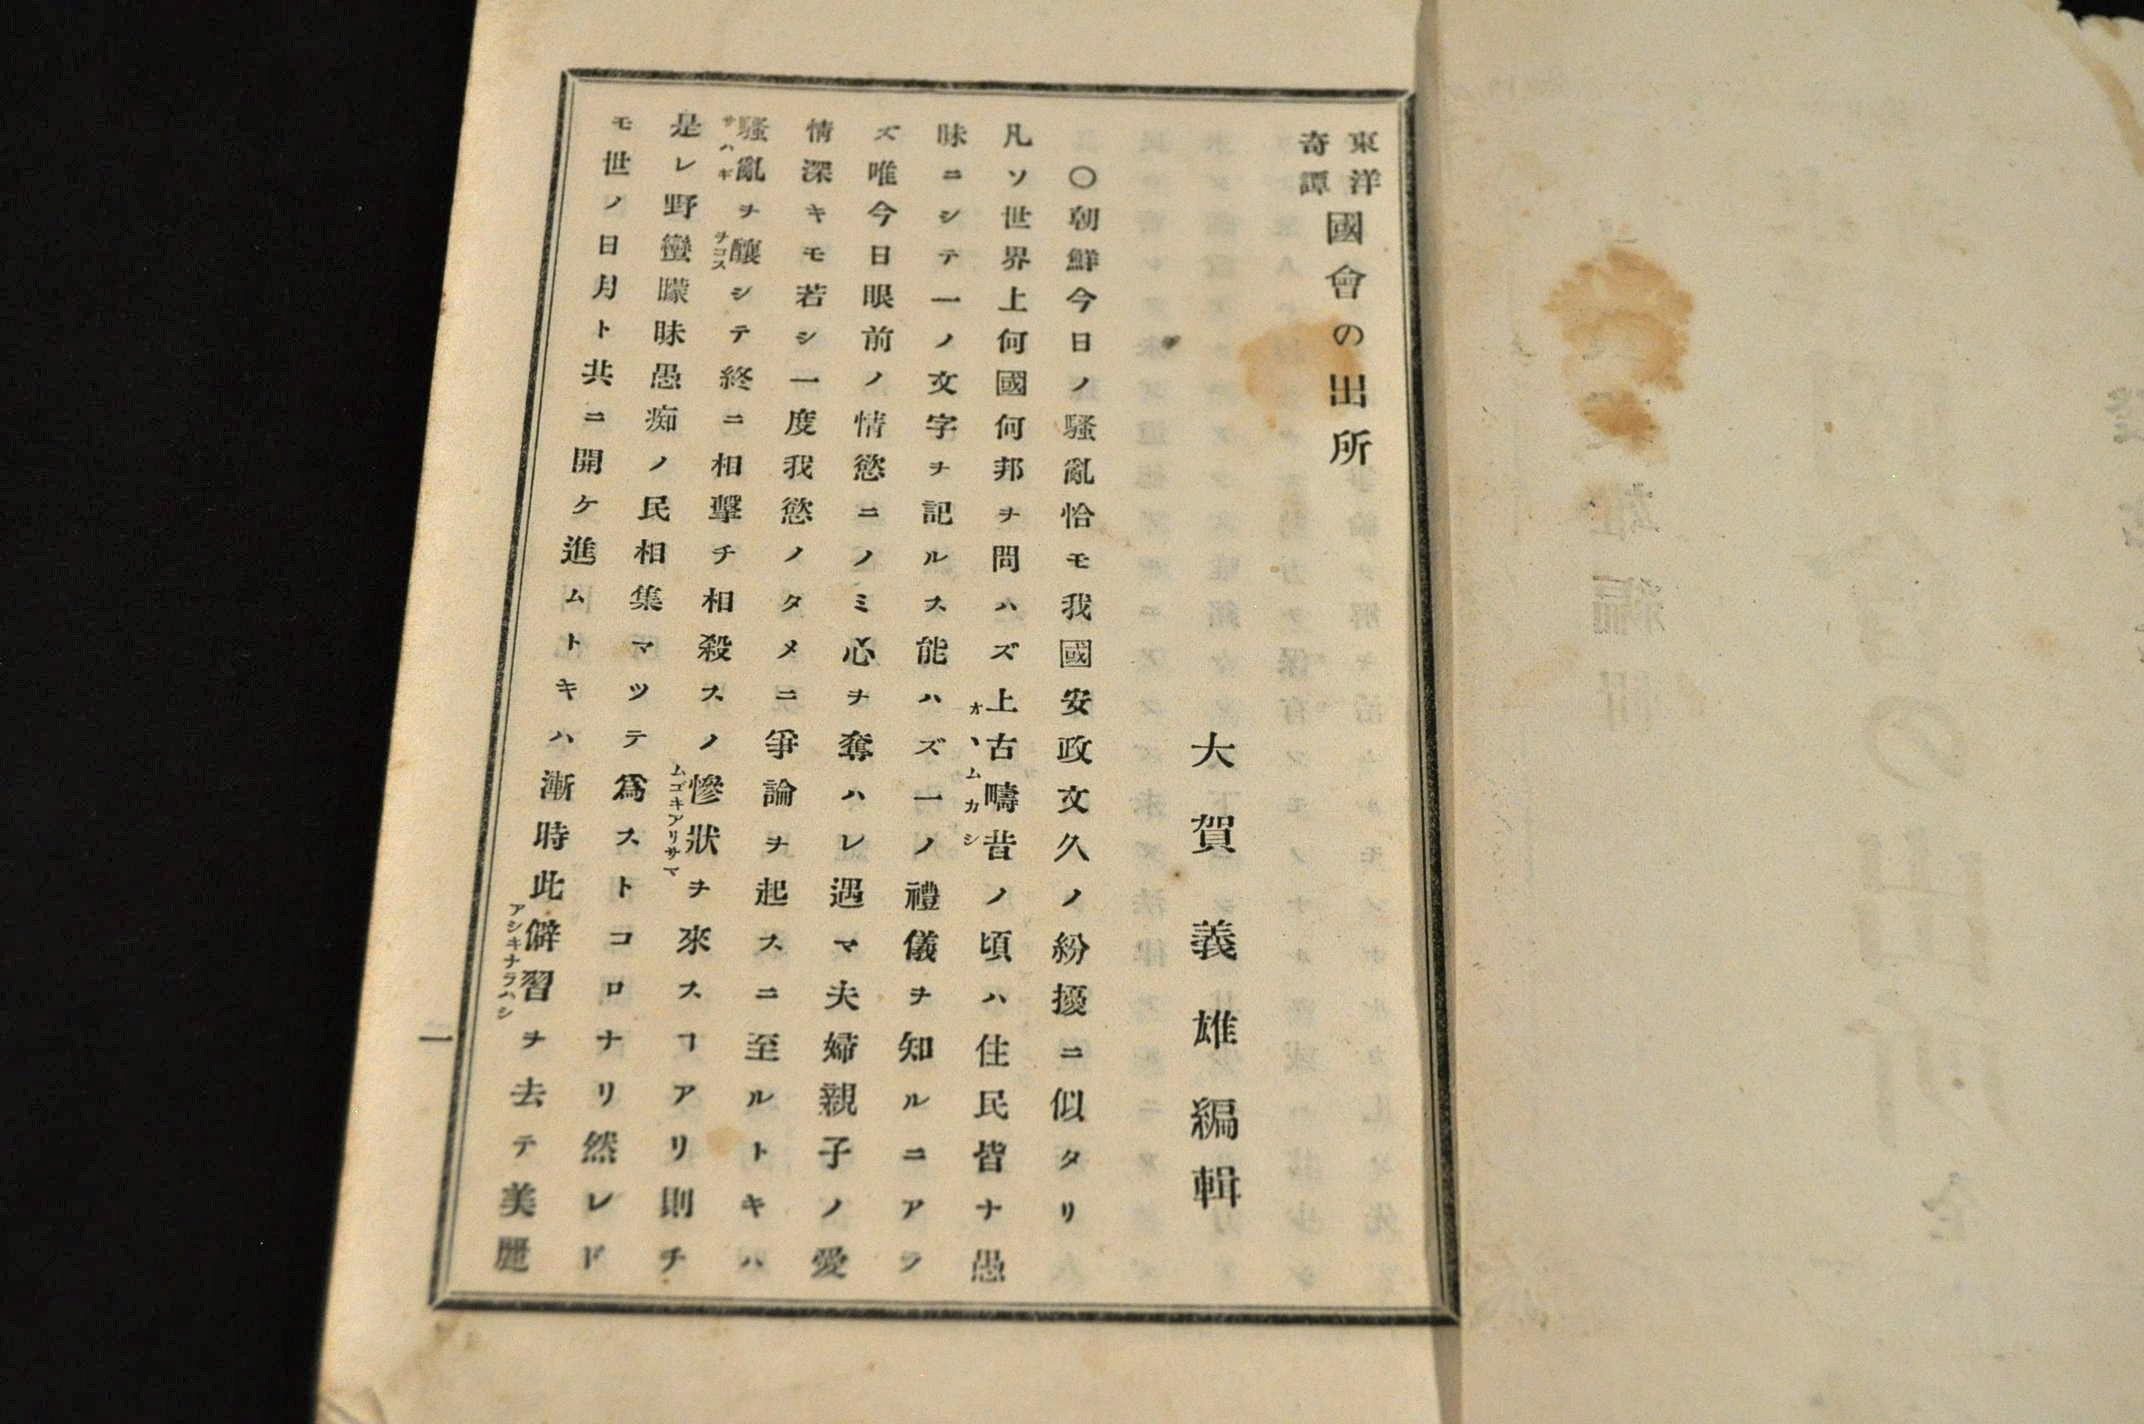 東洋奇譚 國會の出所
大賀義雄編輯
〇朝鮮今日ノ騷亂恰モ我國安政文久ノ紛擾ニ似タリ
凡ソ世界上何國何邦ヲ問ハズ上古疇昔ノ頃ハ住民皆ナ愚
オヽムカシ
昧ニシテ一ノ文字ヲ記ルス能ハズ一ノ禮儀ヲ知ルニアラ
ズ唯今日眼前ノ情慾ニノミ心ヲ奪ハレ遇マ夫婦親子ノ愛
情深キモ若シ一度我慾ノタメニ爭論ヲ起スニ至ルトキハ
騷亂ヲ釀シテ終ニ相擊チ相殺スノ慘狀ヲ來スヿアリ則チ
サハギ ヲコス ムゴキアリサマ
是レ野蠻矇昧愚痴ノ民相集マツテ爲ストコロナリ然レド
モ世ノ日月ト共ニ開ケ進ムトキハ漸時此僻習ヲ去テ美麗
アシキナラハシ
一